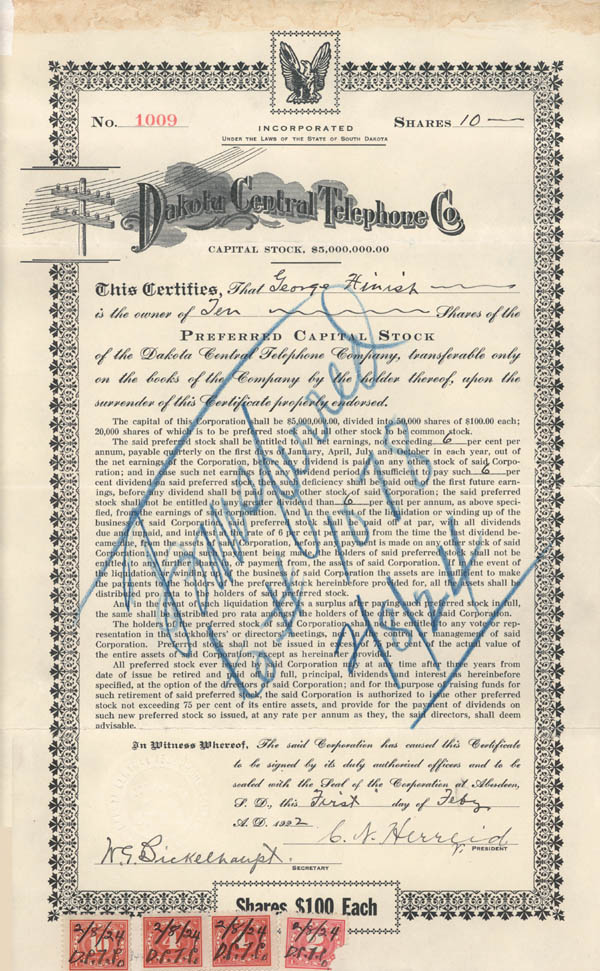 No. 1009
INCORPORATED
UNDER THE LAWS OF THE STATE OF SOUTH DAKOTA
SHARES 10
Dakota Central Telephone Co.
CAPITAL STOCK, $5,000,000.00
This Certifies, That George Hinish
is the owner of Ten Shares of the
PREFERRED CAPITAL STOCK
of the Dakota Central Telephone Company, transferable only
on the books of the Company by the holder thereof, upon the
surrender of this Certificate properly endorsed.
The capital of this corporation shall be $5,000,000.00, divided in shares of $100.00 each;
20,000 shares of which is to be preferred stock and all other stock to be common stock.
The said preferred stock shall be entitled to net earnings, not exceeding 6 per cent per
annum, payable quarterly on the first day of January, April, July and October in each year, out
of the net earnings of the Corporation, before any dividend is paid on any other stock of said Corpo-
ration; and in case such net earnings in any dividend period is insufficient to pay such 6 per
cent dividend on said preferred stock, the deficiency shall be paid out of the first future earn-
ings, before any dividend shall be paid on other stock of said Corporation; the said preferred
stock shall not be entitled to any other dividend than 6 per cent per annum, as above speci-
fied, from the earnings of said corporation. In case of the liquidation or winding up of the
business of said Corporation said preferred stock shall be paid off at par, with all dividends
due and unpaid, and interest at the rate of 6 per cent per annum from the time the last dividend be-
came due, from the assets of said Corporation, before any payment is made on any other stock of said
Corporation; such payment being made, the holders of said preferred stock shall not be
entitled to any other payment from, the assets of said Corporation. In the event of
the liquidation of the business of said Corporation the assets are insufficient to make
the payments to the holders of the preferred stock hereinbefore provided for, all the assets shall be
distributed pro rata to the holders of said preferred stock.
And in the event of such liquidation there is a surplus after paying such preferred stock in full,
the same shall be distributed pro rata among the holders of the other stock of said Corporation.
The holders of said preferred stock of said Corporation shall not be entitled to any vote or rep-
resentation in the stockholders' or directors' meetings, nor in the control or management of said
Corporation. Preferred stock shall not be issued in excess of per cent of the actual value of
the entire assets of said Corporation, except as hereinafter provided.
All preferred stock ever issued by said Corporation may at any time after years from
date of issue be retired and paid in full, principal, dividends and interest as hereinbefore
specified, at the option of the directors of said Corporation; and for the purpose of raising funds for
such retirement of said preferred stock, the said Corporation is authorized to issue other preferred
stock not exceeding 75 per cent of its entire assets, and provide for the payment of dividends on
such new preferred stock so issued, at any rate per annum as they, the said directors, shall deem
advisable.
Transferred
to # 1078
2/8/24
In Witness Whereof, The said Corporation has caused this Certificate
to be signed by its duly authorized officers and to be
sealed with the Seal of the Corporation at Aberdeen,
S. D., this First day of Feby
A. D. 1922
C. N. Herreid
V. PRESIDENT
W. G. Bickelhaupt.
SECRETARY
Shares $100 Each
2/8/24 2/8/24 2/8/24 2/8/24
D.C.T.Co. D.C.T.Co. D.C.T.Co. D.C.T.Co.